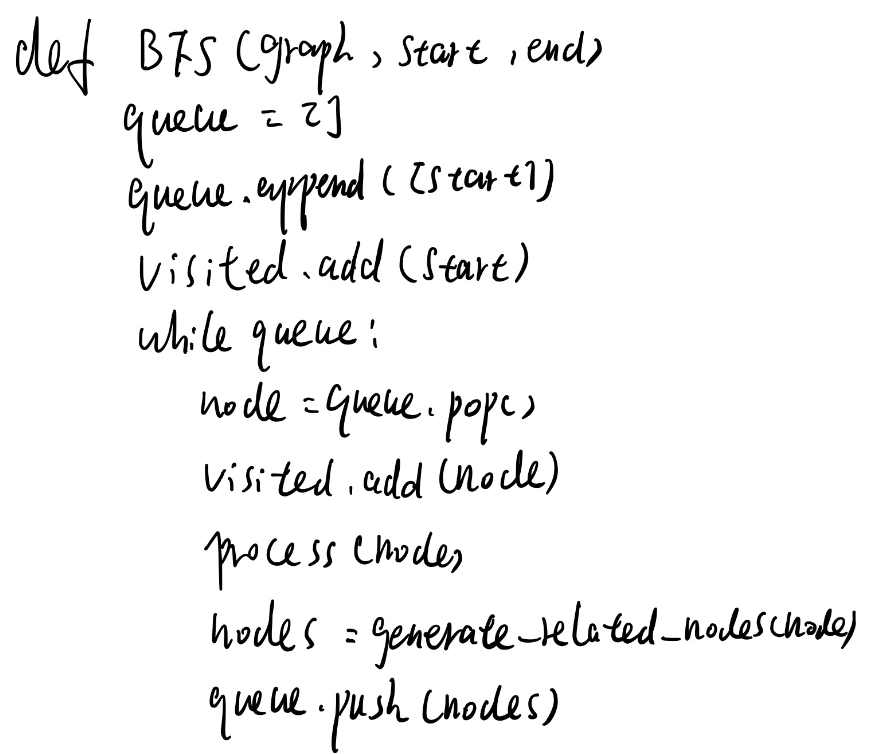 def BFS (graph, start, end)
queue = []
queue.append([start])
visited.add(start)
while queue:
node = queue.pop()
visited.add(node)
process(node)
nodes = generate_related_nodes(node)
queue.push(nodes)